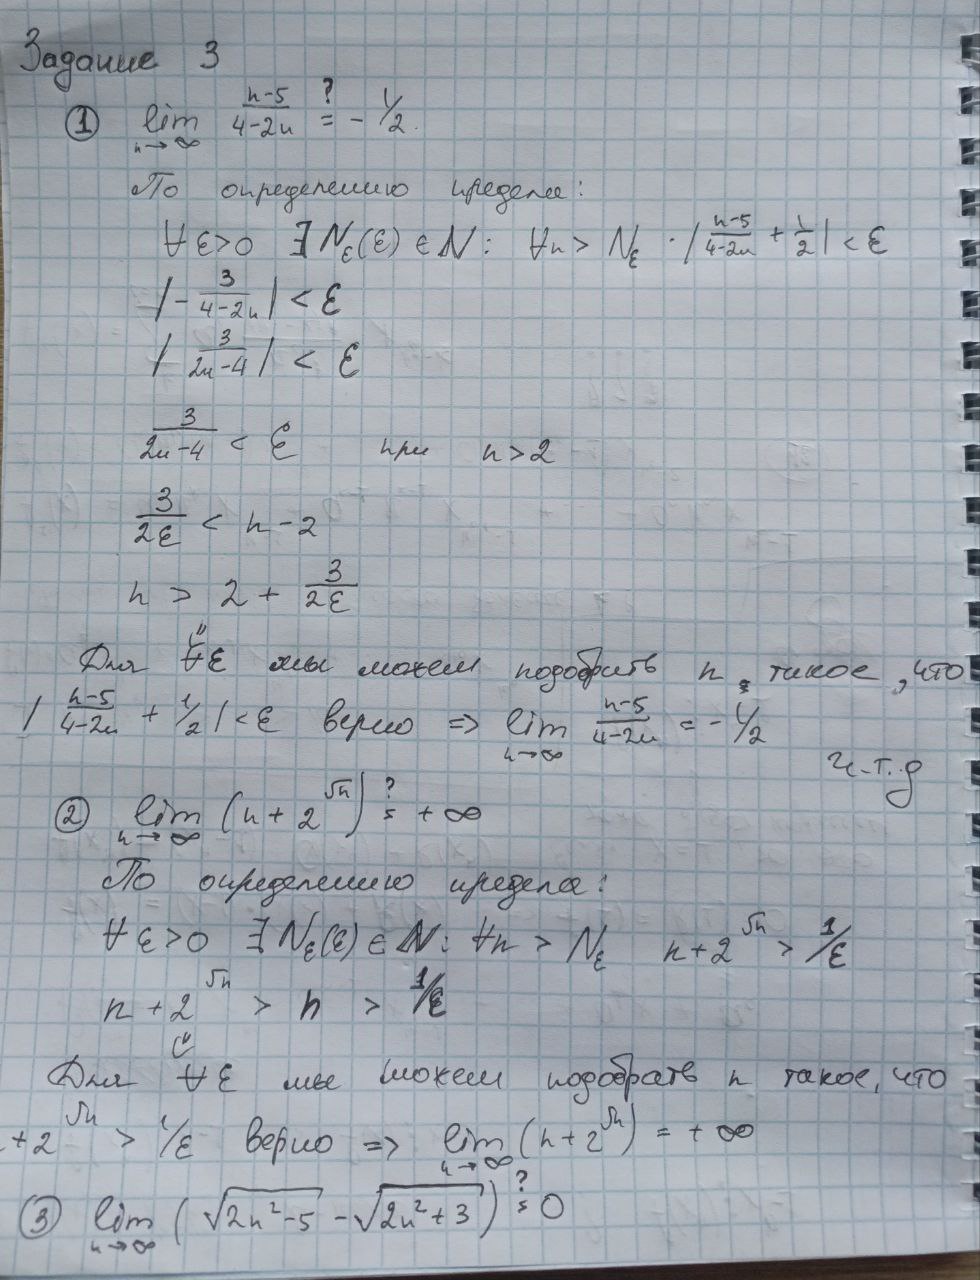 Задание 3
① lim n→∞ (n-5)/(4-2n) ?= - 1/2.
По определению предела:
∀ε>0 ∃N_ε(ε)∈N: ∀n > N_ε · |(n-5)/(4-2n) + 1/2| < ε
|- 3/(4-2n)| < ε
|3/(2n-4)| < ε
3/(2n-4) < ε при n>2
3/(2ε) < n-2
n > 2 + 3/(2ε)
Для ∀й ε мы можем подобрать n такое, что
|(n-5)/(4-2n) + 1/2| < ε верно => lim n→∞ (n-5)/(4-2n) = - 1/2
ч.т.д
② lim n→∞ (n + 2^√n) ?= +∞
По определению предела:
∀ε>0 ∃N_ε(ε)∈N: ∀n > N_ε n+2^√n > 1/ε
n + 2^√n > n > 1/ε
Для ∀й ε мы можем подобрать n такое, что
+2^√n > 1/ε верно => lim n→∞ (n+2^√n) = +∞
③ lim n→∞ (√(2n²-5) - √(2n²+3)) ?= 0